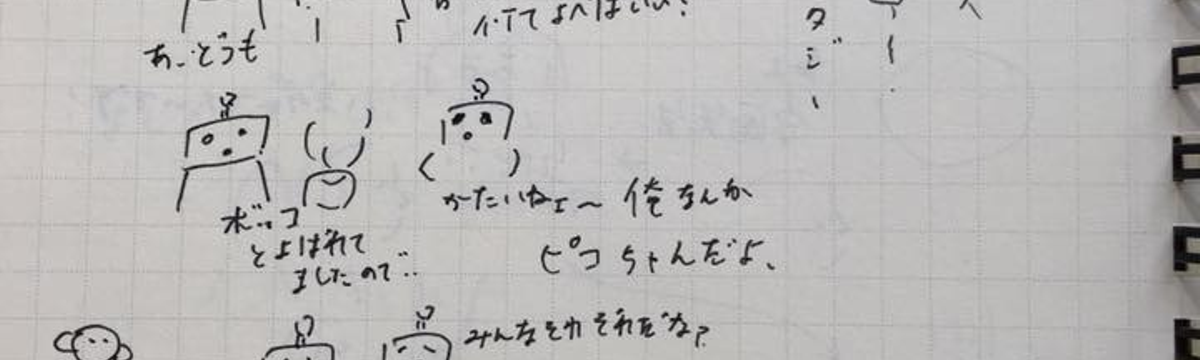 てよべばいい?
あ、どうも
ボッコ
とよばれて
ましたので‥
かたいねェ〜 俺なんか
ピコちゃんだよ、
みんなそれぞれだな?